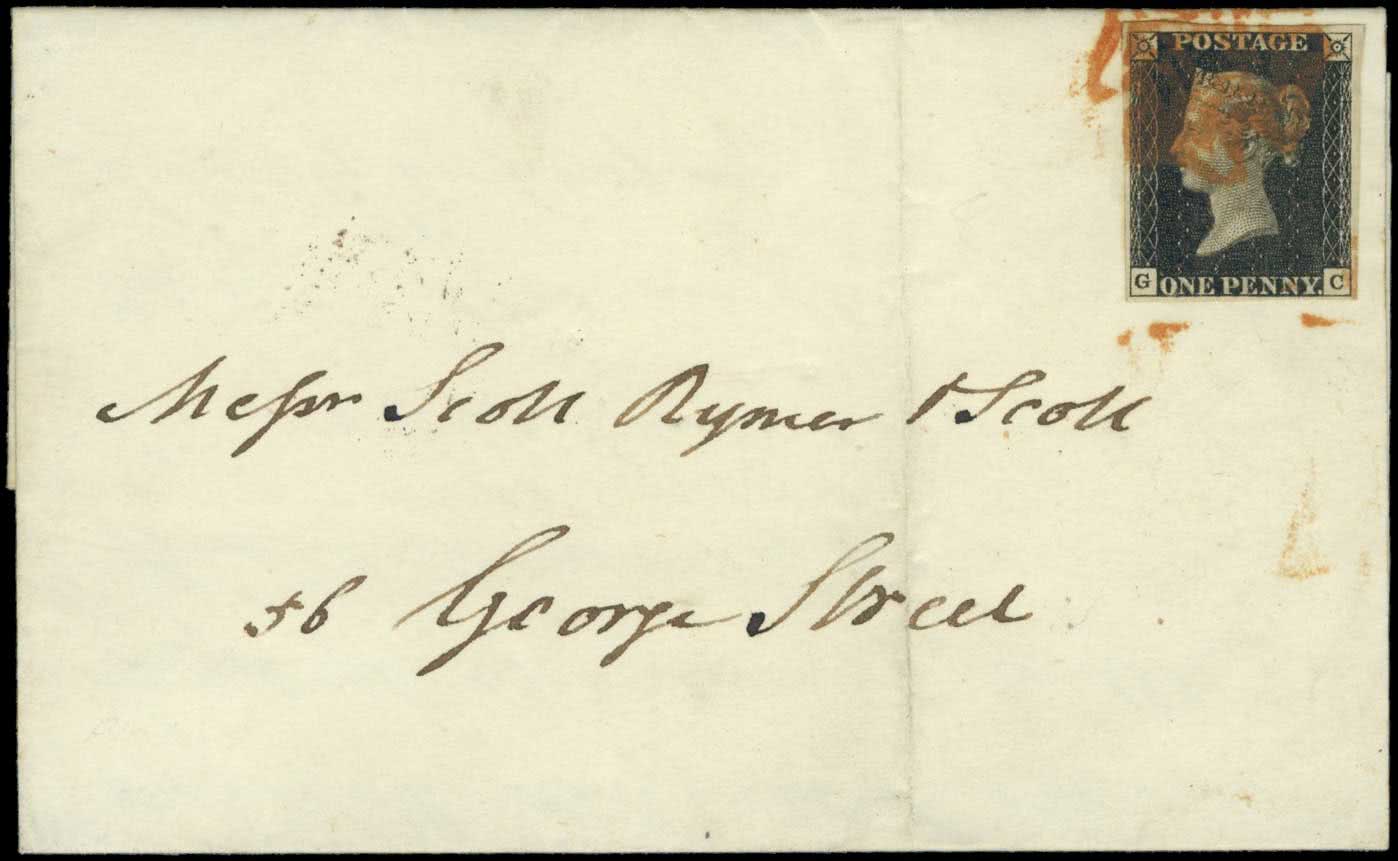 POSTAGE
G ONE PENNY. C
Messrs Scott Rymer & Scott
56 George Street